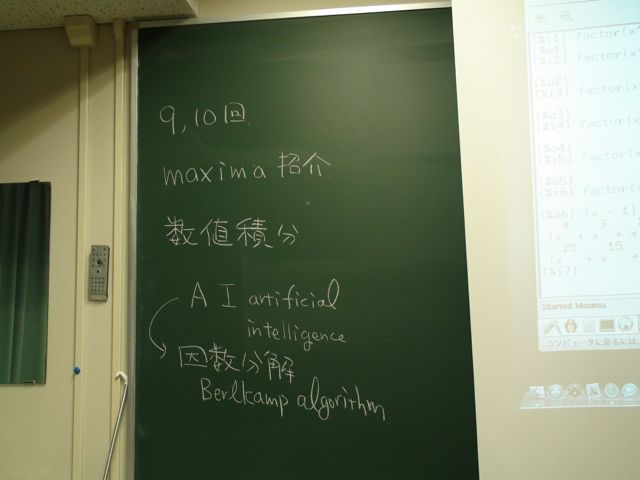 9,10回
maxima 紹介
数値積分
A I artificial
intelligence
因数分解
Berlkamp algorithm
(%i1) factor(x^
(%o1)
(%i2) factor(x
(%o2)
(%i3) factor(x
(%o3)
(%i4) factor(x
(%o4)
(%i5) factor(x
(%o5)
(%i6) factor(x
(%o6) (x - 1)
4 3
(x + x + x
20 15
(x + x +
(%i7)
Started Maxima
コンピュータに戻るには、